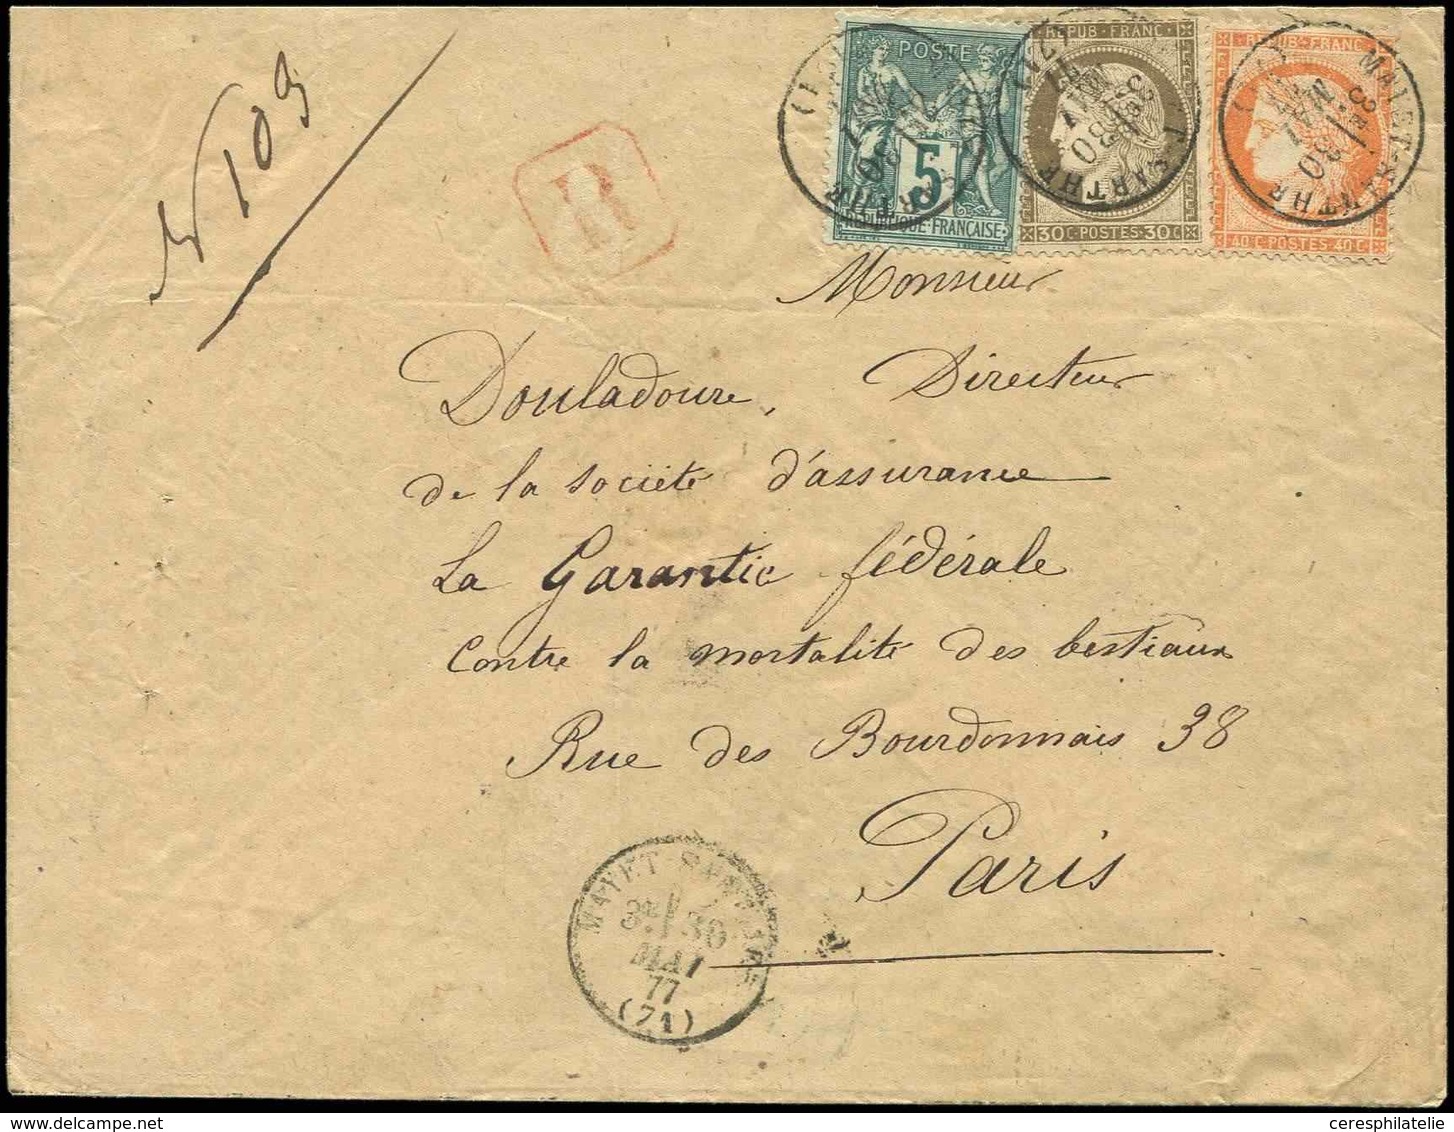 N 109
R
POSTE
5
RÉPUBLIQUE FRANÇAISE
REPUB. FRANC.
30 C. POSTES. 30 C.
REPUB. FRANC.
40 C. POSTES. 40 C.
MAYET-SARTHE
3E
30
MAI
Monsieur
Douladoure, Directeur
de la société d'assurance
La Garantie fédérale
contre la mortalité des bestiaux
Rue des Bourdonnais 38
Paris
MAYET SARTHE
3E 30
MAI
77
(71)
ceresphilatelie